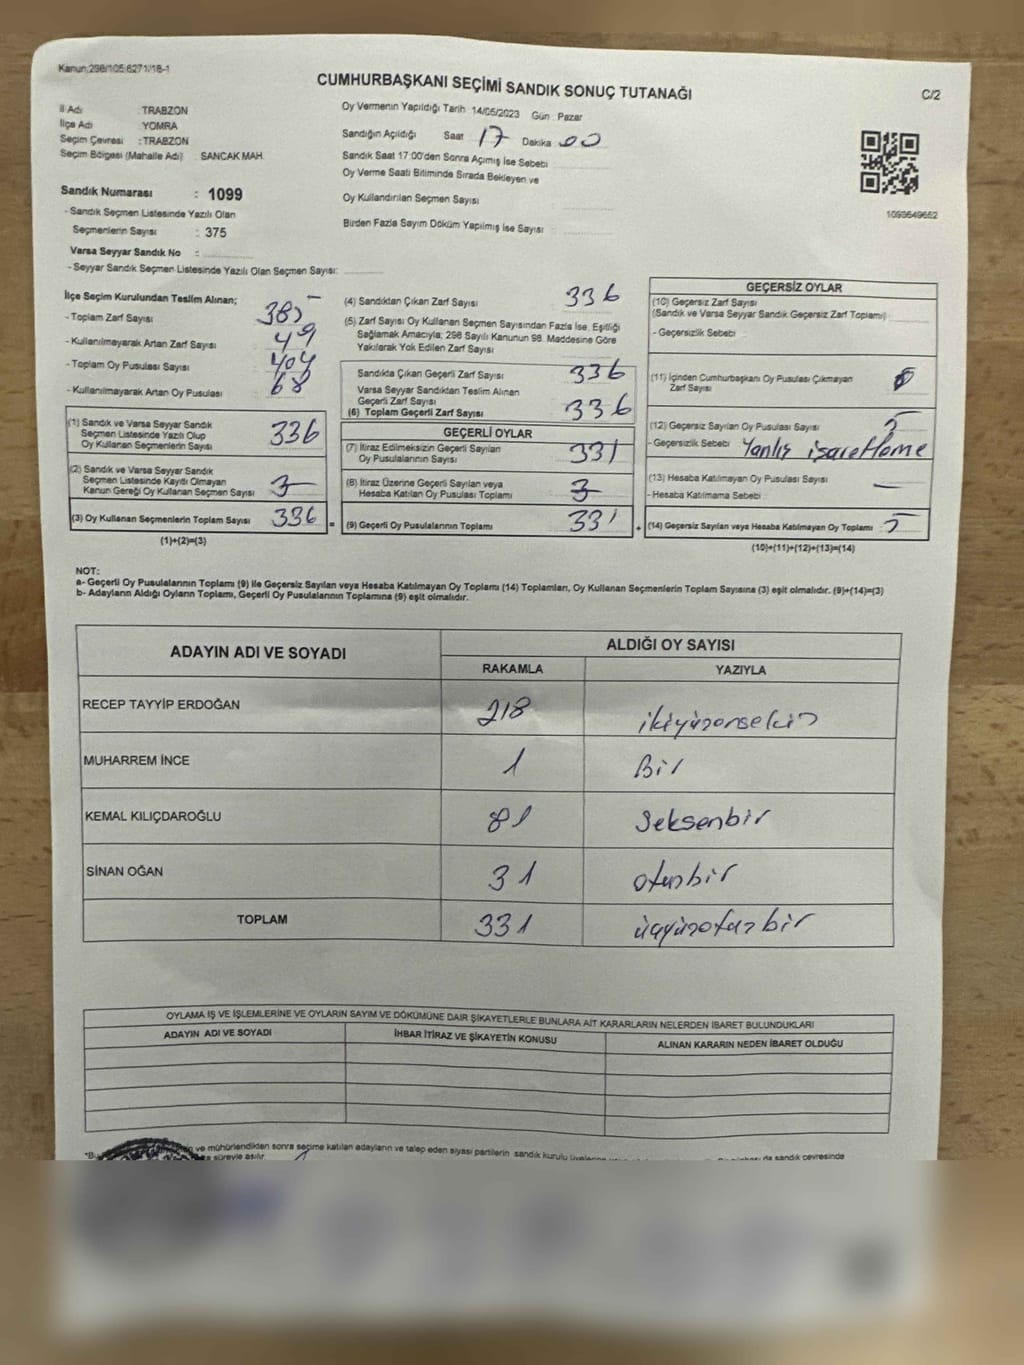 Kanun:298/105;6271/18-1
CUMHURBAŞKANI SEÇİMİ SANDIK SONUÇ TUTANAĞI
C/2
İl Adı : TRABZON
İlçe Adı : YOMRA
Seçim Çevresi : TRABZON
Seçim Bölgesi (Mahalle Adı) SANCAK MAH.
Sandık Numarası : 1099
- Sandık Seçmen Listesinde Yazılı Olan
Seçmenlerin Sayısı : 375
Varsa Seyyar Sandık No :
- Seyyar Sandık Seçmen Listesinde Yazılı Olan Seçmen Sayısı:
Oy Vermenin Yapıldığı Tarih 14/05/2023 Gün : Pazar
Sandığın Açıldığı Saat 17 Dakika 00
Sandık Saat 17:00'den Sonra Açımış İse Sebebi
Oy Verme Saati Bitiminde Sırada Bekleyen ve
Oy Kullandırılan Seçmen Sayısı
Birden Fazla Sayım Döküm Yapılmış İse Sayısı :
1099649652
İlçe Seçim Kurulundan Teslim Alınan;
- Toplam Zarf Sayısı 385
- Kullanılmayarak Artan Zarf Sayısı 49
- Toplam Oy Pusulası Sayısı 404
- Kullanılmayarak Artan Oy Pusulası 68
(1) Sandık ve Varsa Seyyar Sandık
Seçmen Listesinde Yazılı Olup
Oy Kullanan Seçmenlerin Sayısı 336
(2) Sandık ve Varsa Seyyar Sandık
Seçmen Listesinde Kayıtlı Olmayan
Kanun Gereği Oy Kullanan Seçmen Sayısı
(3) Oy Kullanan Seçmenlerin Toplam Sayısı 336 =
(1)+(2)=(3)
(4) Sandıktan Çıkan Zarf Sayısı 336
(5) Zarf Sayısı Oy Kullanan Seçmen Sayısından Fazla İse, Eşitliği
Sağlamak Amacıyla; 298 Sayılı Kanunun 98. Maddesine Göre
Yakılarak Yok Edilen Zarf Sayısı
Sandıkta Çıkan Geçerli Zarf Sayısı 336
Varsa Seyyar Sandıktan Teslim Alınan
Geçerli Zarf Sayısı
(6) Toplam Geçerli Zarf Sayısı 336
GEÇERLİ OYLAR
(7) İtiraz Edilmeksizin Geçerli Sayılan
Oy Pusulalarının Sayısı 331
(8) İtiraz Üzerine Geçerli Sayılan veya
Hesaba Katılan Oy Pusulası Toplamı
(9) Geçerli Oy Pusulalarının Toplamı 331 +
GEÇERSİZ OYLAR
(10) Geçersiz Zarf Sayısı
(Sandık ve Varsa Seyyar Sandık Geçersiz Zarf Toplamı)
- Geçersizlik Sebebi :
(11) İçinden Cumhurbaşkanı Oy Pusulası Çıkmayan
Zarf Sayısı
(12) Geçersiz Sayılan Oy Pusulası Sayısı 5
- Geçersizlik Sebebi : Yanlış işaretleme
(13) Hesaba Katılmayan Oy Pusulası Sayısı —
- Hesaba Katılmama Sebebi :
(14) Geçersiz Sayılan veya Hesaba Katılmayan Oy Toplamı : 5
(10)+(11)+(12)+(13)=(14)
NOT:
a- Geçerli Oy Pusulalarının Toplamı (9) ile Geçersiz Sayılan veya Hesaba Katılmayan Oy Toplamı (14) Toplamları, Oy Kullanan Seçmenlerin Toplam Sayısına (3) eşit olmalıdır. (9)+(14)=(3)
b- Adayların Aldığı Oyların Toplamı, Geçerli Oy Pusulalarının Toplamına (9) eşit olmalıdır.
ADAYIN ADI VE SOYADI ALDIĞI OY SAYISI
RAKAMLA YAZIYLA
RECEP TAYYİP ERDOĞAN 218 ikiyüzonsekiz
MUHARREM İNCE 1 Bir
KEMAL KILIÇDAROĞLU 81 Seksenbir
SİNAN OĞAN 31 otuzbir
TOPLAM 331 üçyüzotuzbir
OYLAMA İŞ VE İŞLEMLERİNE VE OYLARIN SAYIM VE DÖKÜMÜNE DAİR ŞİKAYETLERLE BUNLARA AİT KARARLARIN NELERDEN İBARET BULUNDUKLARI
ADAYIN ADI VE SOYADI İHBAR İTİRAZ VE ŞİKAYETİN KONUSU ALINAN KARARIN NEDEN İBARET OLDUĞU
ve mühürlendikten sonra seçime katılan adayların ve talep eden siyasi partilerin sandık kurulu
da sandık çevresinde
süreyle asılır.